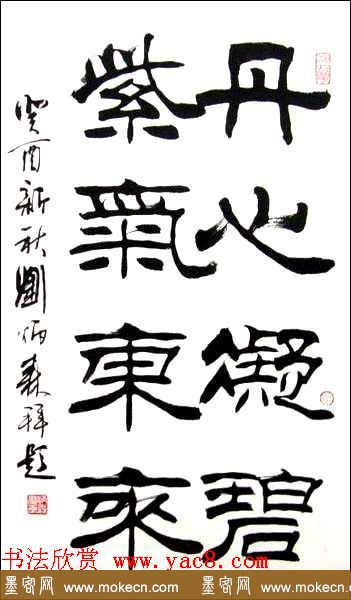 丹心凝碧
紫氣東來
癸酉新秋劉炳森拜題
书法欣赏 www.yac8.com
墨客网 www.mokecn.com 墨客网 www.mokecn.com